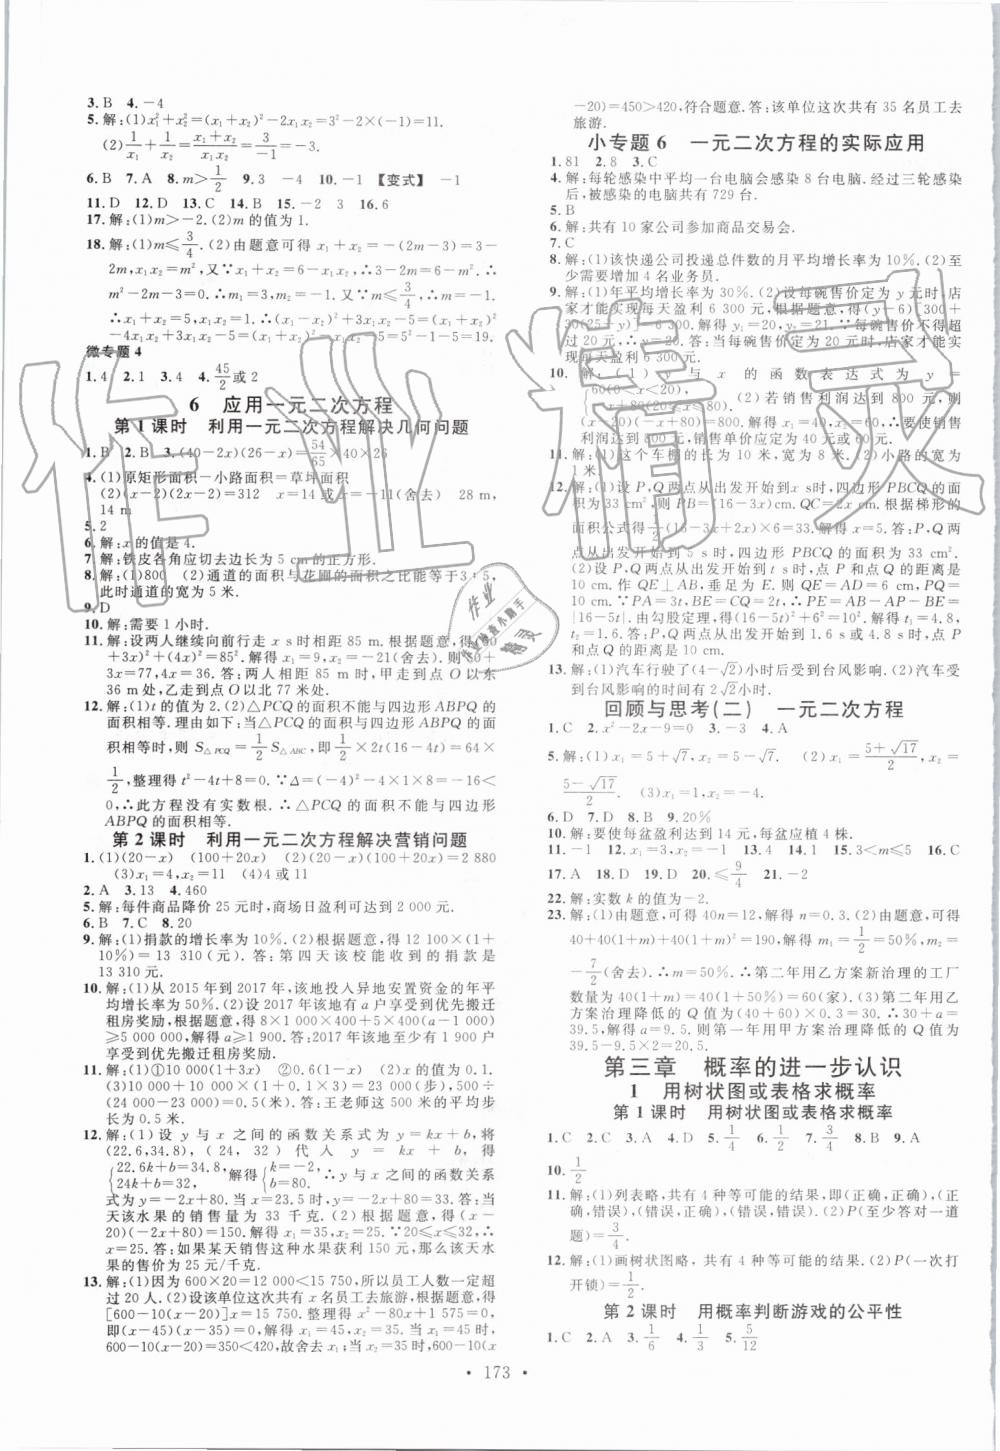 3. B  4. －4
5. 解:(1)x₁²＋x₂²＝(x₁＋x₂)²－2x₁x₂＝3²－2×(－1)＝11.
(2)1/x₁＋1/x₂＝(x₁＋x₂)/(x₁x₂)＝3/(－1)＝－3.
6. B  7. A  8. m＞1/2  9. 3  －4  10. －1  【变式】  －1
11. D  12. D  13. C  14. B  15. －2  3  16. 6
17. 解:(1)m＞－2. (2)m 的值为 1.
18. 解:(1)m≤3/4. (2)由题意可得 x₁＋x₂＝－(2m－3)＝3－
2m,x₁x₂＝m². 又∵x₁＋x₂＝6－x₁x₂,∴3－2m＝6－m². ∴
m²－2m－3＝0. ∴m₁＝3,m₂＝－1. 又∵m≤3/4,∴m＝－1.
∴x₁＋x₂＝5,x₁x₂＝1. ∴(x₁－x₂)²＋3x₁x₂－5＝(x₁＋x₂)²
－4x₁x₂＋3x₁x₂－5＝(x₁＋x₂)²－x₁x₂－5＝5²－1－5＝19.
微专题 4
1. 4  2. 1  3. 4  4. 45/2或 2
6  应用一元二次方程
第 1 课时  利用一元二次方程解决几何问题
1. B  2. B  3. (40－2x)(26－x)＝54/65×40×26
4. (1)原矩形面积－小路面积＝草坪面积
(2)(x－2)(2x－2)＝312  x＝14 或 x＝－11(舍去)  28 m,
14 m
5. 2
6. 解:x 的值是 4.
7. 解:铁皮各角应切去边长为 5 cm 的正方形.
8. 解:(1)800  (2)通道的面积与花圃的面积之比能等于3∶5,
此时通道的宽为 5 米.
9. D
10. 解:需要 1 小时.
11. 解:设两人继续向前行走 x s时相距 85 m. 根据题意,得(30
＋3x)²＋(4x)²＝85². 解得 x₁＝9,x₂＝－(舍去). 当 x＝9 时,30
＋3x＝77,4x＝36. 答:两人相距 85 m 时,甲走到点 O 以东
36 m 处,乙走到点 O 以北 77 米处.
12. 解:(1)t 的值为 2. (2)△PCQ 的面积不能与四边形ABPQ 的
面积相等. 理由如下:当△PCQ 的面积与四边形 ABPQ 的面
积相等时,则 S△PCQ＝1/2S△ABC,即1/2×2t(16－4t)＝64×
1/2,整理得 t²－4t＋8＝0. ∵Δ＝(－4)²－4×8＝－16＜
0,∴此方程没有实数根. ∴△PCQ 的面积不能与四边形
ABPQ 的面积相等.
第 2 课时  利用一元二次方程解决营销问题
1. (1)(20－x)  (100＋20x)  (2)(20－x)(100＋20x)＝2 880
(3)x₁＝4,x₂＝11  (4)4 或 11
2. A  3. 13  4. 460
5. 解:每件商品降价 25 元时,商场日盈利可达到 2 000 元.
6. B  7. C  8. 20
9. 解:(1)捐款的增长率为 10%. (2)根据题意,得 12 100×(1＋
10%)＝13 310(元). 答:第四天该校能收到的捐款是
13 310 元.
10. 解:(1)从 2015 年到 2017 年,该地投入异地安置资金的年平
均增长率为 50%. (2)设 2017 年该地有 a 户享受到优先搬迁
租房奖励,根据题意,得 8×1 000×400＋5×400(a－1 000)
≥5 000 000. 解得 a≥1 900. 答:2017 年该地至少有 1 900 户
享受到优先搬迁租房奖励.
11. 解:(1)①10 000(1＋3x)  ②0.6(1－x)  (2)10 000(1＋
3x)×0.6(1－x)＝7 020. 解得 x₁＝0.5(舍去),x₂＝0.1. 则
x 的值为 0.1. (3)10 000＋10 000×(1＋0.1×3)＝23 000(步),500÷
(24 000－23 000)＝0.5(米). 答:王老师这 500 米的步长
为 0.5 米.
12. 解:(1)设 y 与 x 之间的函数关系式为 y＝kx＋b,将
(22.6,34.8),(24,32)代入 y＝kx＋b,得
{22.6k＋b＝34.8, 24k＋b＝32 解得{k＝－2, b＝80. ∴y 与 x 之间的函数关系
式为 y＝－2x＋80. 当 x＝23.5 时,y＝－2x＋80＝33. 答:当
天该水果的销售量为 33 千克. (2)根据题意,得(x－
20)(－2x＋80)＝150. 解得 x₁＝35,x₂＝25. ∵20≤x≤32,∴
x＝25. 答:如果某天销售这种水果获利 150 元,那么该天水
果的售价为 25 元/千克.
13. 解:(1)因为 600×20＝12 000＜15 750,所以员工人数一定超
过 20 人. (2)设该单位这次共有 x 名员工去旅游,根据题意,得
[600－10(x－20)]x＝15 750. 整理得 x²－80x＋1 575＝0,
即(x－45)(x－35)＝0. 解得 x₁＝45,x₂＝35. 当 x＝45 时,
600－10(x－20)＝350＜420,故舍去x₁;当 x＝35 时,600－10(x
－20)＝450＞420,符合题意. 答:该单位这次共有 35 名员工去
旅游.
小专题 6  一元二次方程的实际应用
1. 81  2. 8  3. C
4. 解:每轮感染中平均一台电脑会感染 8 台电脑. 经过三轮感染
后,被感染的电脑共有 729 台.
5. B
6. 解:共有 10 家公司参加商品交易会.
7. C
8. 解:(1)该快递公司投递总件数的月平均增长率为 10%. (2)至
少需要增加 4 名业务员.
9. 解:(1)年平均增长率为 30%. (2)设每碗售价定为 y 元时,店
家才能实现每天盈利 6 300 元. 根据题意,得(y－6)[300＋
30(25－y)]＝6 300. 解得 y₁＝20,y₂＝21. ∵每碗售价不得超
过 20 元,∴y＝20. 答:当每碗售价定为 20 元时,店家才能实现
每天盈利 6 300 元.
10. 解:(1)y 与 x 的函数表达式为 y＝
60(0＜x＜20)  (2)若销售利润达到 800 元,则
(x－20)(－x＋80)＝800. 解得x₁＝40,x₂＝60. ∴要使销售
利润达到 800 元,销售单价应定为 40 元或 60 元.
11. 解:(1)这个车棚的长为 10 米,宽为 8 米. (2)小路的宽为
1 米.
12. 解:(1)设 P,Q 两点从出发开始到x s时,四边形 PBCQ 的
面积为 33 cm². 则 PB＝(16－3x)cm. QC＝2x cm. 根据梯形的
面积公式得1/2(16－3x＋2x)×6＝33. 解得 x＝5. 答:P,Q 两
点从出发开始到 5 s 时,四边形 PBCQ 的面积为 33 cm².
(2)设 P,Q 两点从出发开始到 t s时,点 P 和点 Q 的距离是
10 cm. 作 QE⊥AB,垂足为 E. 则 QE＝AD＝6 cm,PQ＝
10 cm. ∵PA＝3t,BE＝CQ＝2t,∴PE＝AB－AP－BE＝
|16－5t|. 由勾股定理,得(16－5t)²＋6²＝10². 解得t₁＝4.8,
t₂＝1.6. 答:P,Q 两点从出发开始到 1.6 s 或 4.8 s 时,点 P
和点 Q 的距离是 10 cm.
13. 解:(1)汽车行驶了(4－√2)小时后受到台风影响. (2)汽车受
到台风影响的时间有 2√2小时.
回顾与思考(二)  一元二次方程
1. C  2. x²－2x－9＝0  3. －3  4. A
5. 解:(1)x₁＝5＋√7,x₂＝5－√7.  (2)x₁＝(5＋√17)/2,x₂＝
(5－√17)/2.  (3)x₁＝1,x₂＝2.
6. D  7. D  8. B  9. 20%
10. 解:要使每盆盈利达到 14 元,每盆应植 4 株.
11. －1  12. 1 000  13. 4  14. 1  15. 3＜m≤5  16. C
17. A  18. D  19. D  20. ≤9/4  21. －2
22. 解:实数 k 的值为－2.
23. 解:(1)由题意,可得 40n＝12,解得 n＝0.3. (2)由题意,可得
40＋40(1＋m)＋40(1＋m)²＝190,解得 m₁＝1/2＝50%,m₂＝
－7/2(舍去). ∴m＝50%. ∴第二年用乙方案新治理的工厂
数量为 40(1＋m)＝40(1＋50%)＝60(家). (3)第二年用乙
方案治理降低的 Q 值为(40＋60)×0.3＝30. ∴30＋a＝
39.5,解得 a＝9.5. 则第一年用甲方案治理降低的 Q 值为
第三章  概率的进一步认识
1  用树状图或表格求概率
第 1 课时  用树状图或表格求概率
1. C  2. C  3. A  4. D  5. 1/4  6. 1/2  7. 3/4  8. B  9. A
10. 1/2
11. 解:(1)列表略,共有 4 种等可能的结果,即(正确,正确),(正
确,错误),(错误,正确),(错误,错误). (2)P(至少答对一道
题)＝3/4.
12. 解:(1)画树状图略,共有 4 种等可能的结果. (2)P(一次打
开锁)＝1/2.
第 2 课时  用概率判断游戏的公平性
1. C  2. A  3. 1/6  4. 1/3  5. 5/12
· 173 ·
作业精灵
作业
检查小助手
精灵